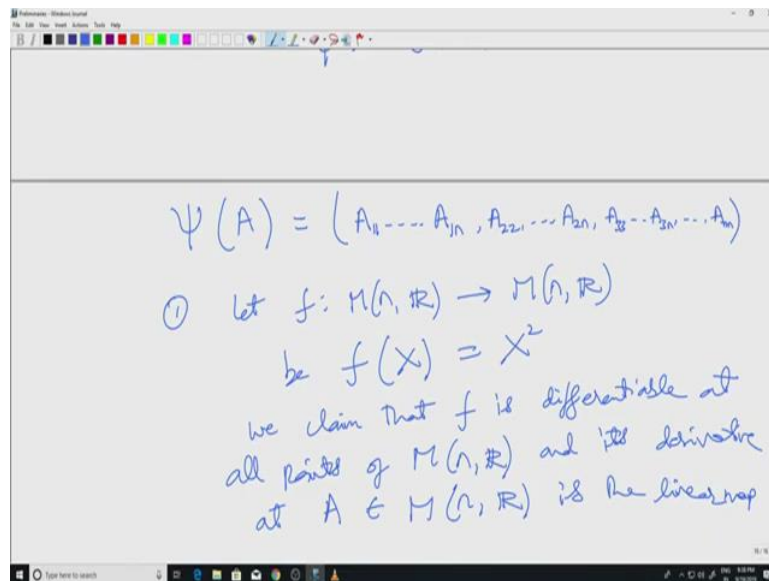 Preliminaries - Windows Journal
File Edit View Insert Actions Tools Help
Ψ(A) = (A₁₁ ---- A₁ₙ, A₂₂, --- A₂ₙ, A₃₃ -- A₃ₙ, ... Aₙₙ)
① Let f: M(n, ℝ) → M(n, ℝ)
be f(X) = X²
we claim that f is differentiable at
all points of M(n, ℝ) and its derivative
at A ∈ M(n, ℝ) is the linear map
Type here to search